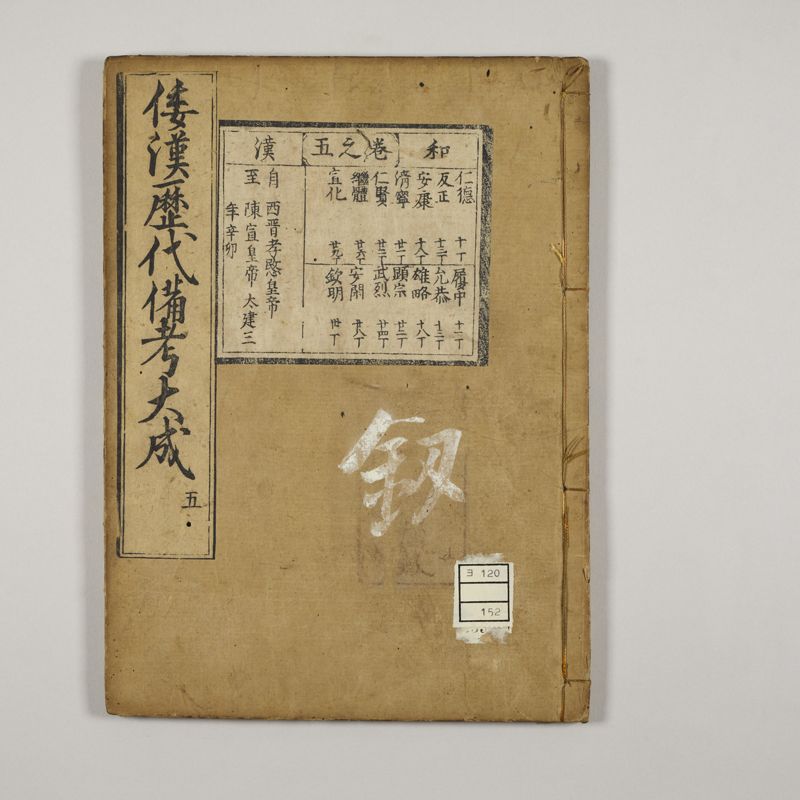 倭漢歴代備考大成 五
和
巻之五
漢
仁德 十丁 履中 十二丁
反正 十三丁 允恭 十三丁
安康 十八丁 雄略 十八丁
淸寧 廿二丁 顕宗 廿二丁
仁賢 廿三丁 武烈 廿四丁
繼體 廿六丁 安閑 廿八丁
宣化 廿九丁 欽明 卅丁
自 西晋孝愍皇帝
至 陳宣皇帝 太建三
年辛卯
釼
ヨ 120
152